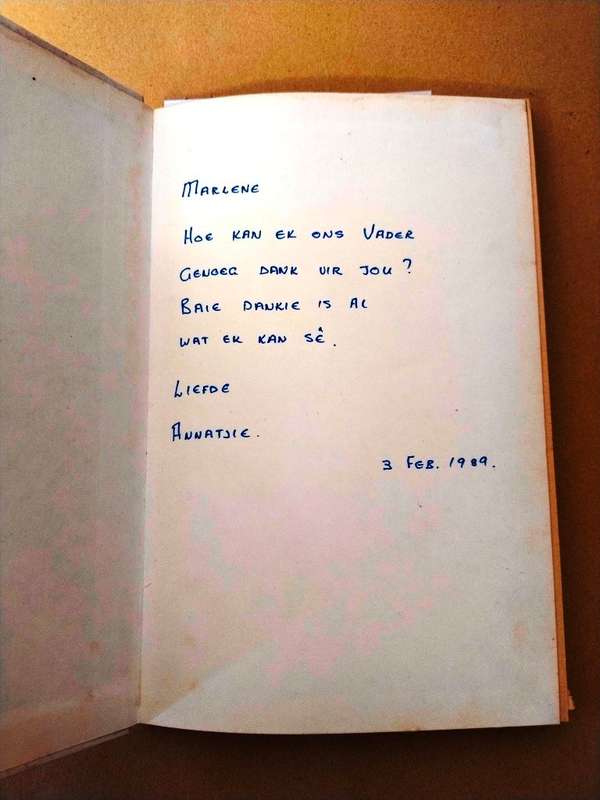 Marlene
Hoe kan ek ons Vader
genoeg dank vir jou?
Baie dankie is al
wat ek kan sê.
Liefde
Annatjie.
3 Feb. 1989.